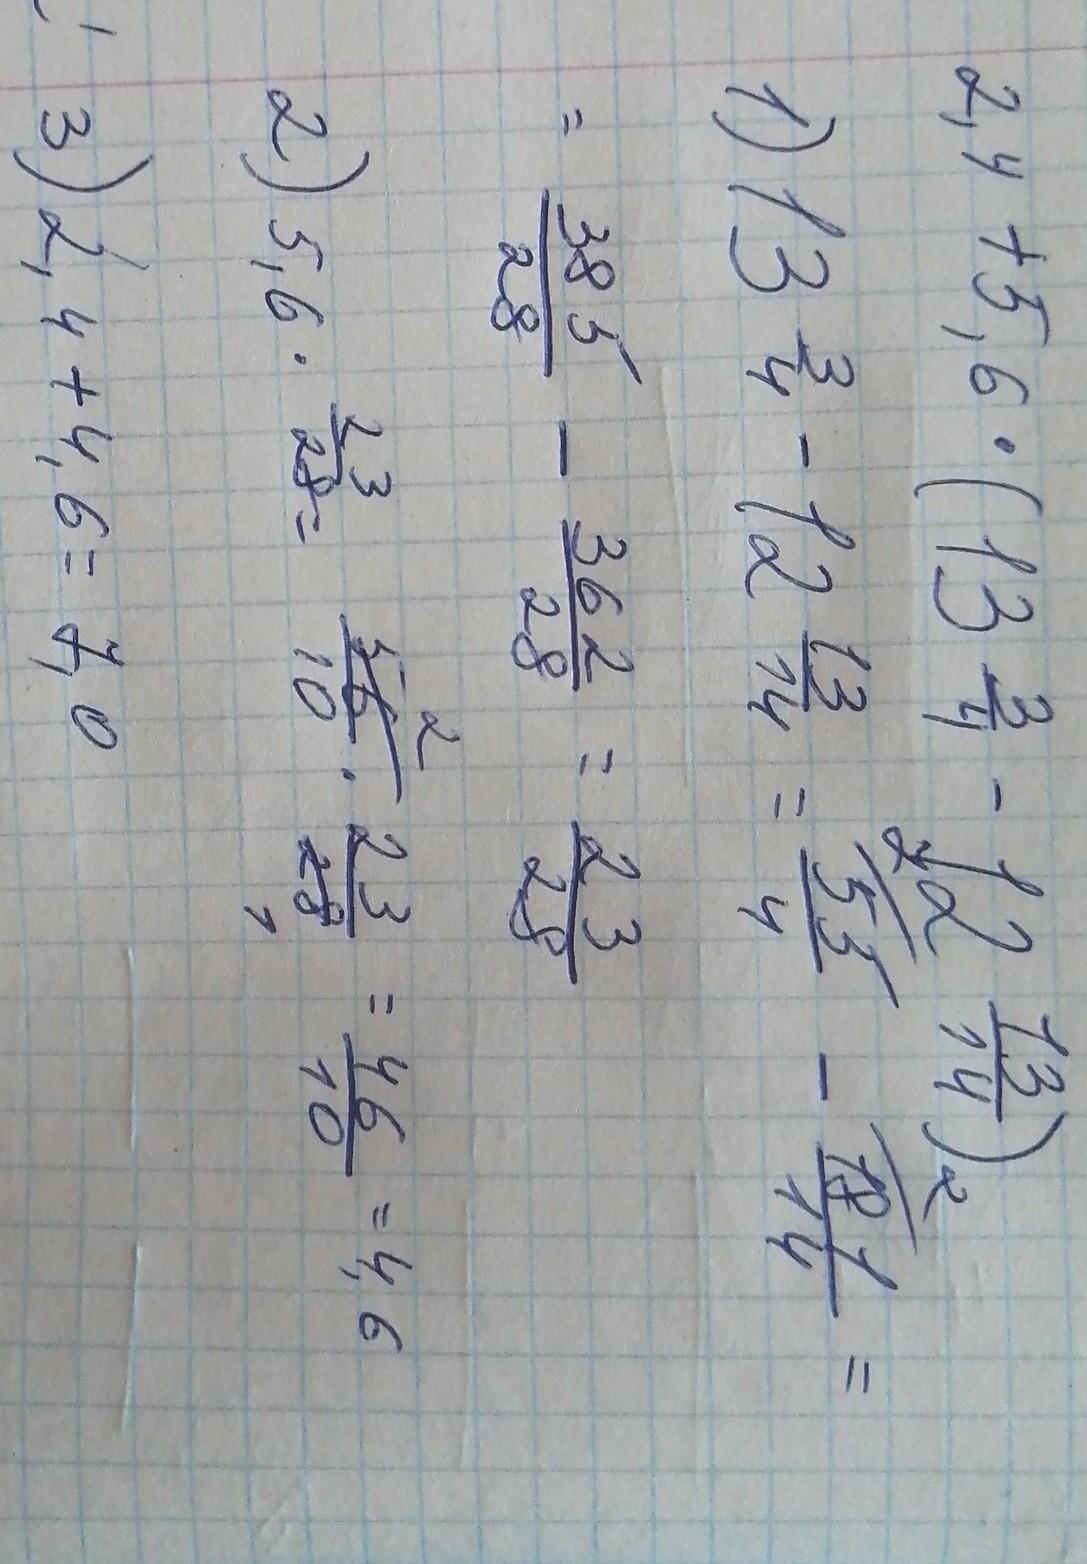 2,4 + 5,6 · (13 3/4 - 12 13/14)
1) 13 3/4 - 12 13/14 = 55/4 - 181/14 =
= 385/28 - 362/28 = 23/28
2) 5,6 · 23/28 = 56/10 · 23/28 = 46/10 = 4,6
3) 2,4 + 4,6 = 7,0